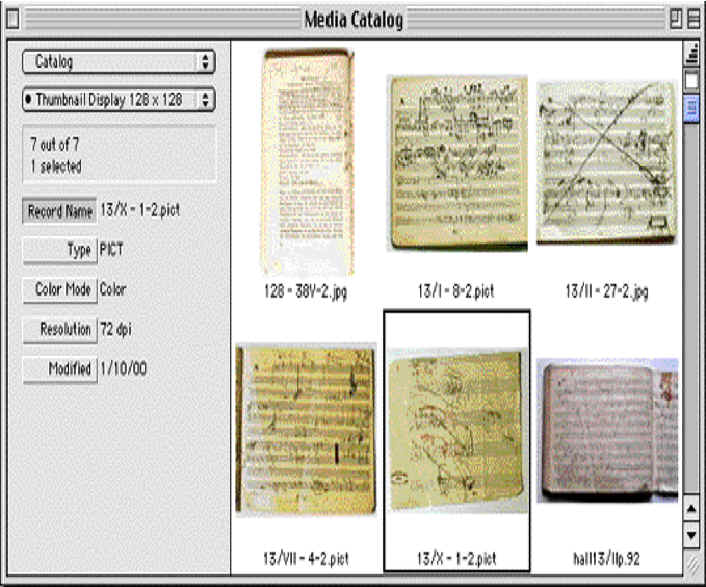 Media Catalog
Catalog
• Thumbnail Display 128 x 128
7 out of 7
1 selected
Record Name 13/X - 1-2.pict
Type PICT
Color Mode Color
Resolution 72 dpi
Modified 1/10/00
128 - 38V-2.jpg 13/I - 8-2.pict 13/II - 27-2.jpg
13/VII - 4-2.pict 13/X - 1-2.pict hall13/IIp.92